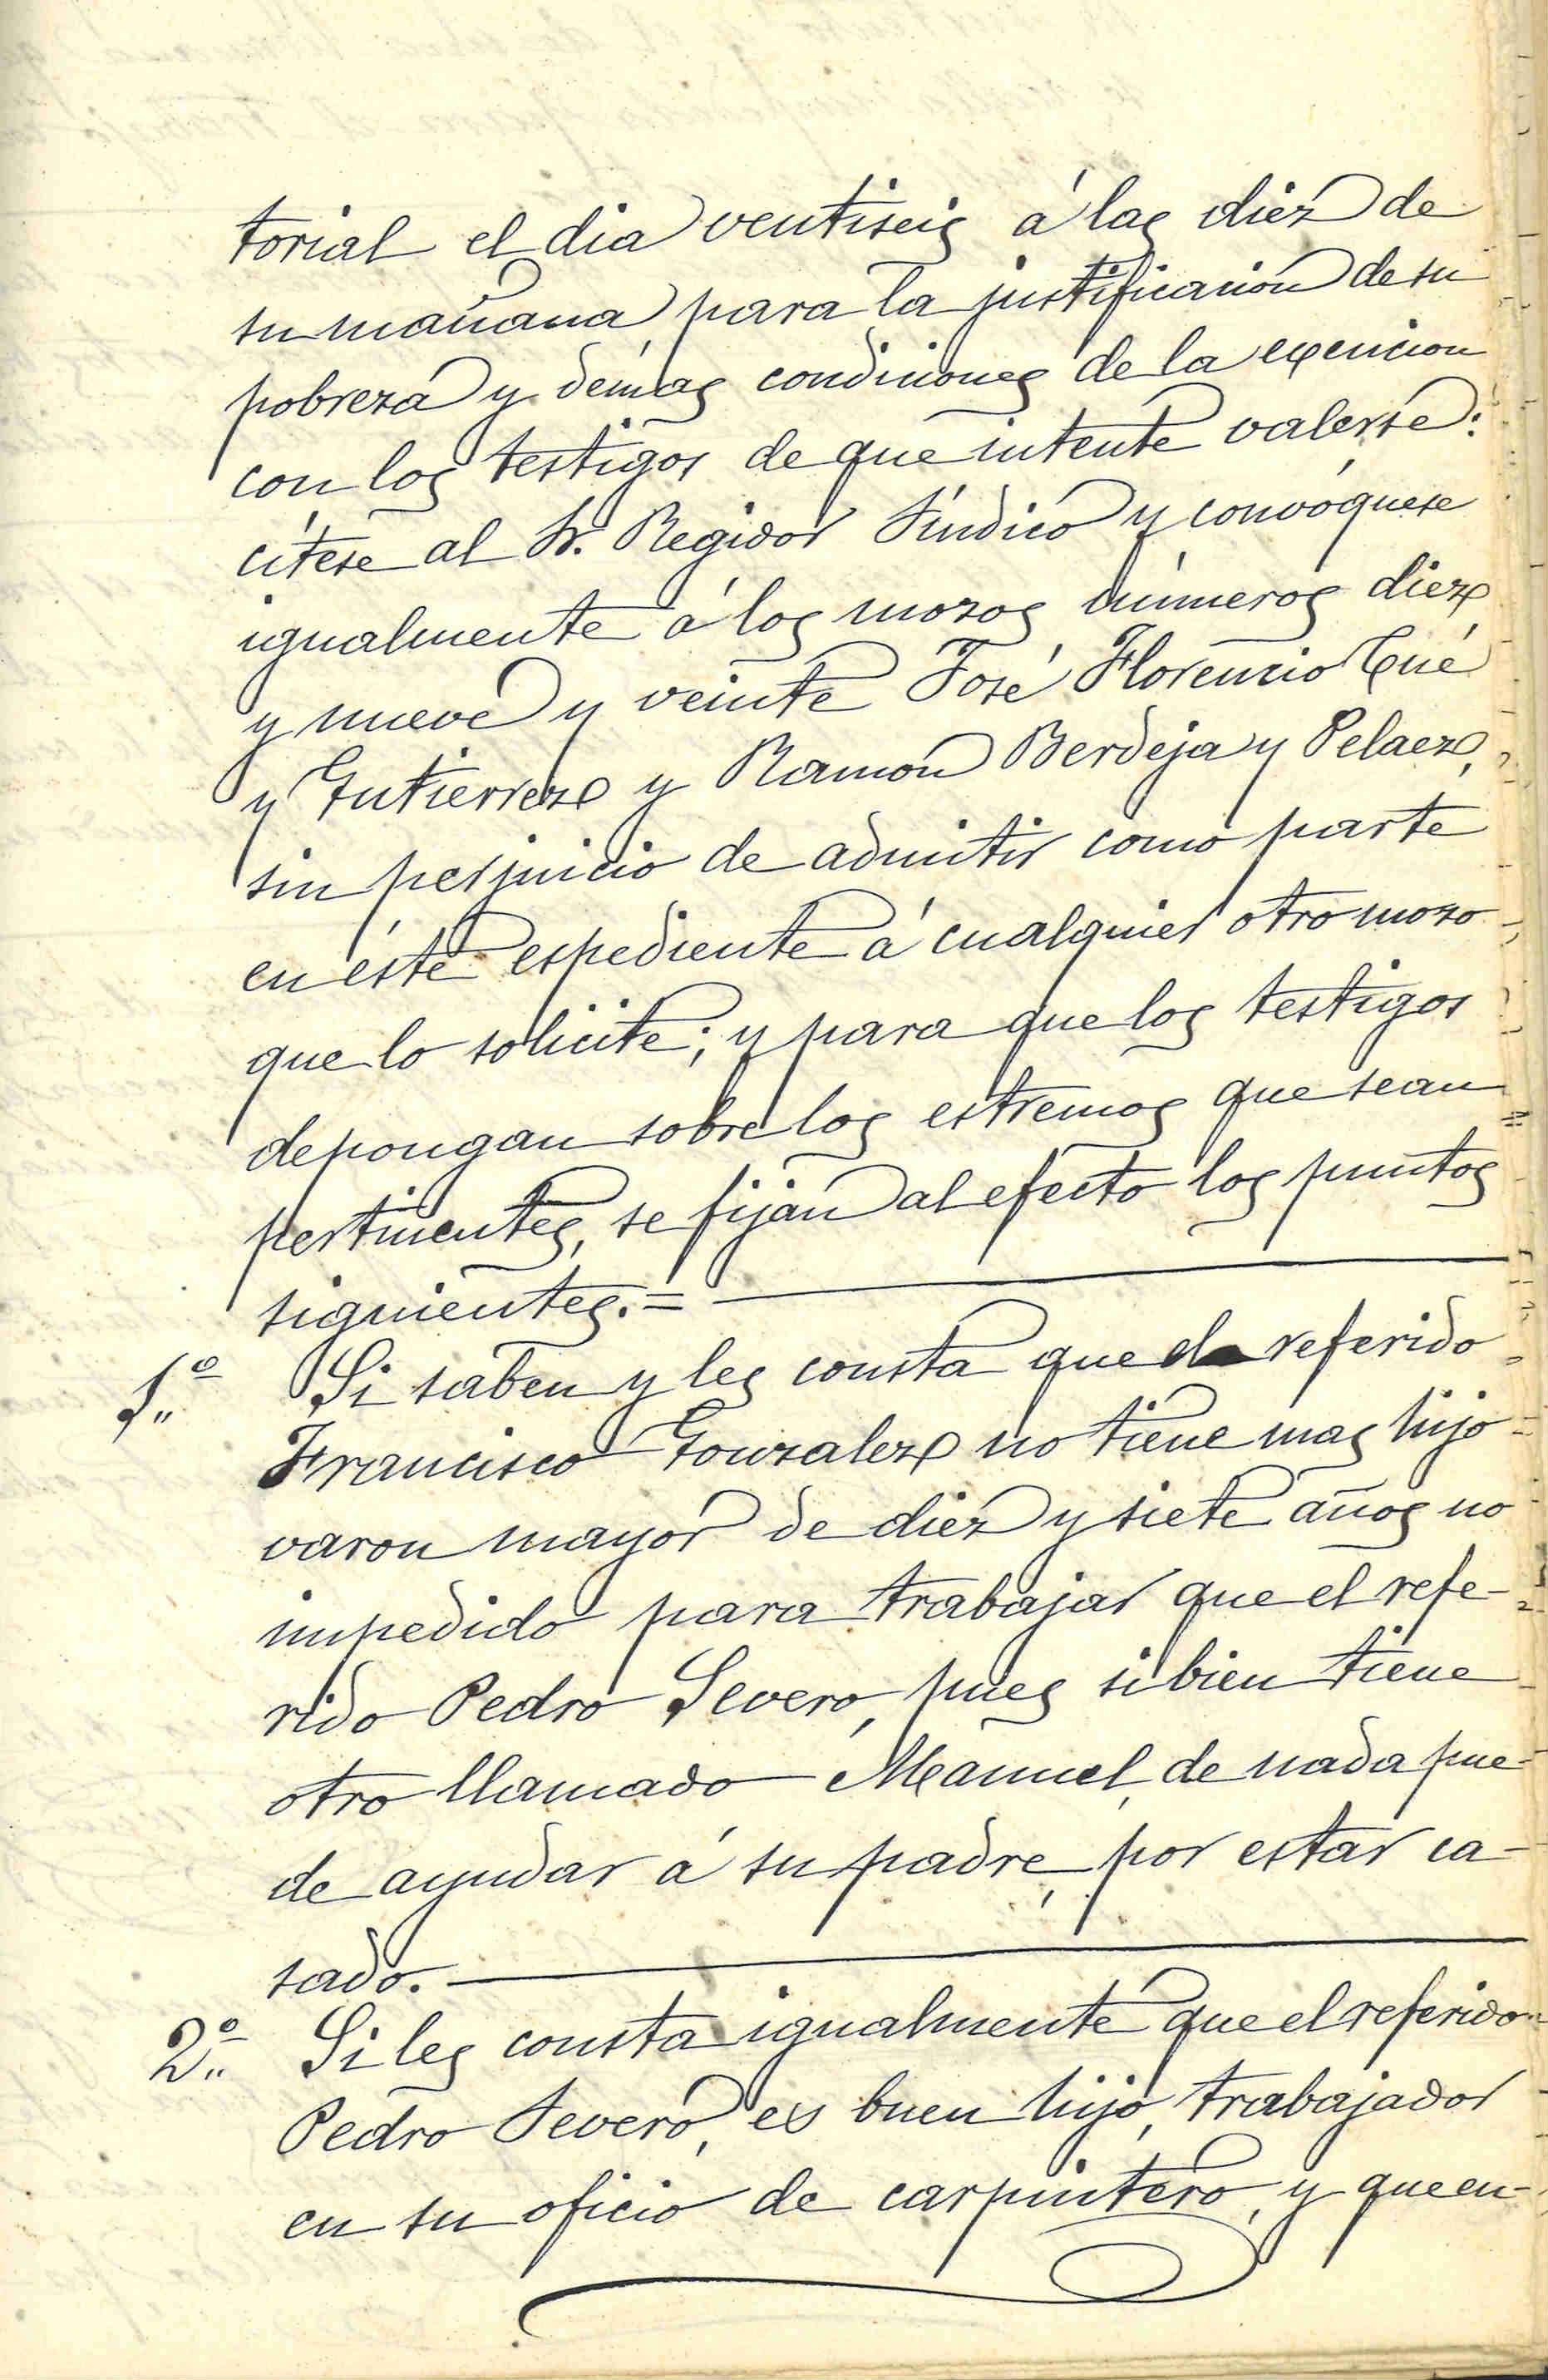 torial el dia ventiseis á las diez de
su mañana para la justificacion de su
pobreza y demas condiciones de la exencion
con los testigos de que intente valerse:
cítese al Sr. Regidor Síndico y convóquese
igualmente á los mozos números diez
y nueve y veinte José Florencio Cué
y Gutierrez y Ramon Berdeja y Pelaez,
sin perjuicio de admitir como parte
en éste espediente á cualquier otro mozo
que lo solicite; y para que los testigos
depongan sobre los estremos que sean
pertinentes, se fijan al efecto los puntos
siguientes.=
1.º Si saben y les consta que el referido
Francisco Gonzalez no tiene mas hijo
varon mayor de diez y siete años no
impedido para trabajar que el refe-
rido Pedro Severo, pues si bien tiene
otro llamado Manuel, de nada pue-
de ayudar á su padre, por estar ca-
sado.
2.º Si les consta igualmente que el referido
Pedro Severo, es buen hijo, trabajador
en su oficio de carpintero, y que en-